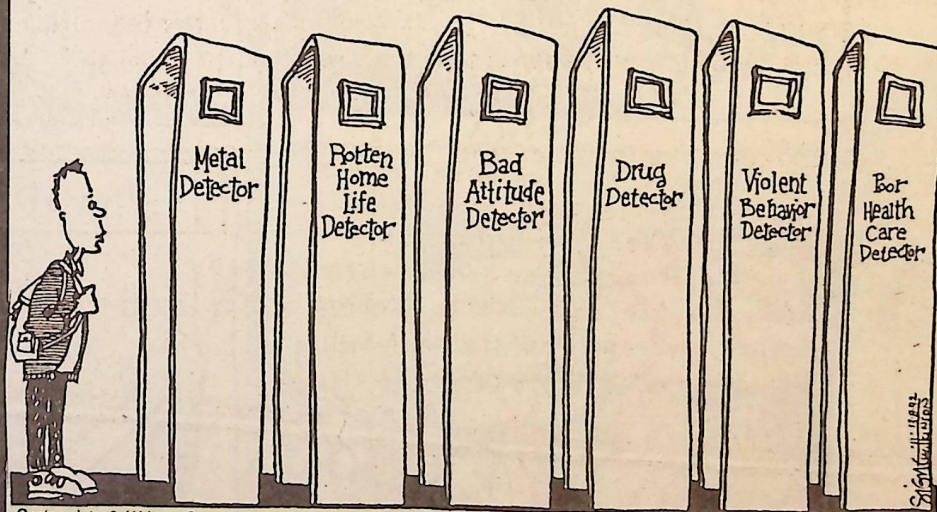 Metal
Detector
Rotten
Home
Life
Detector
Bad
Attitude
Detector
Drug
Detector
Violent
Behavior
Detector
Poor
Health
Care
Detector